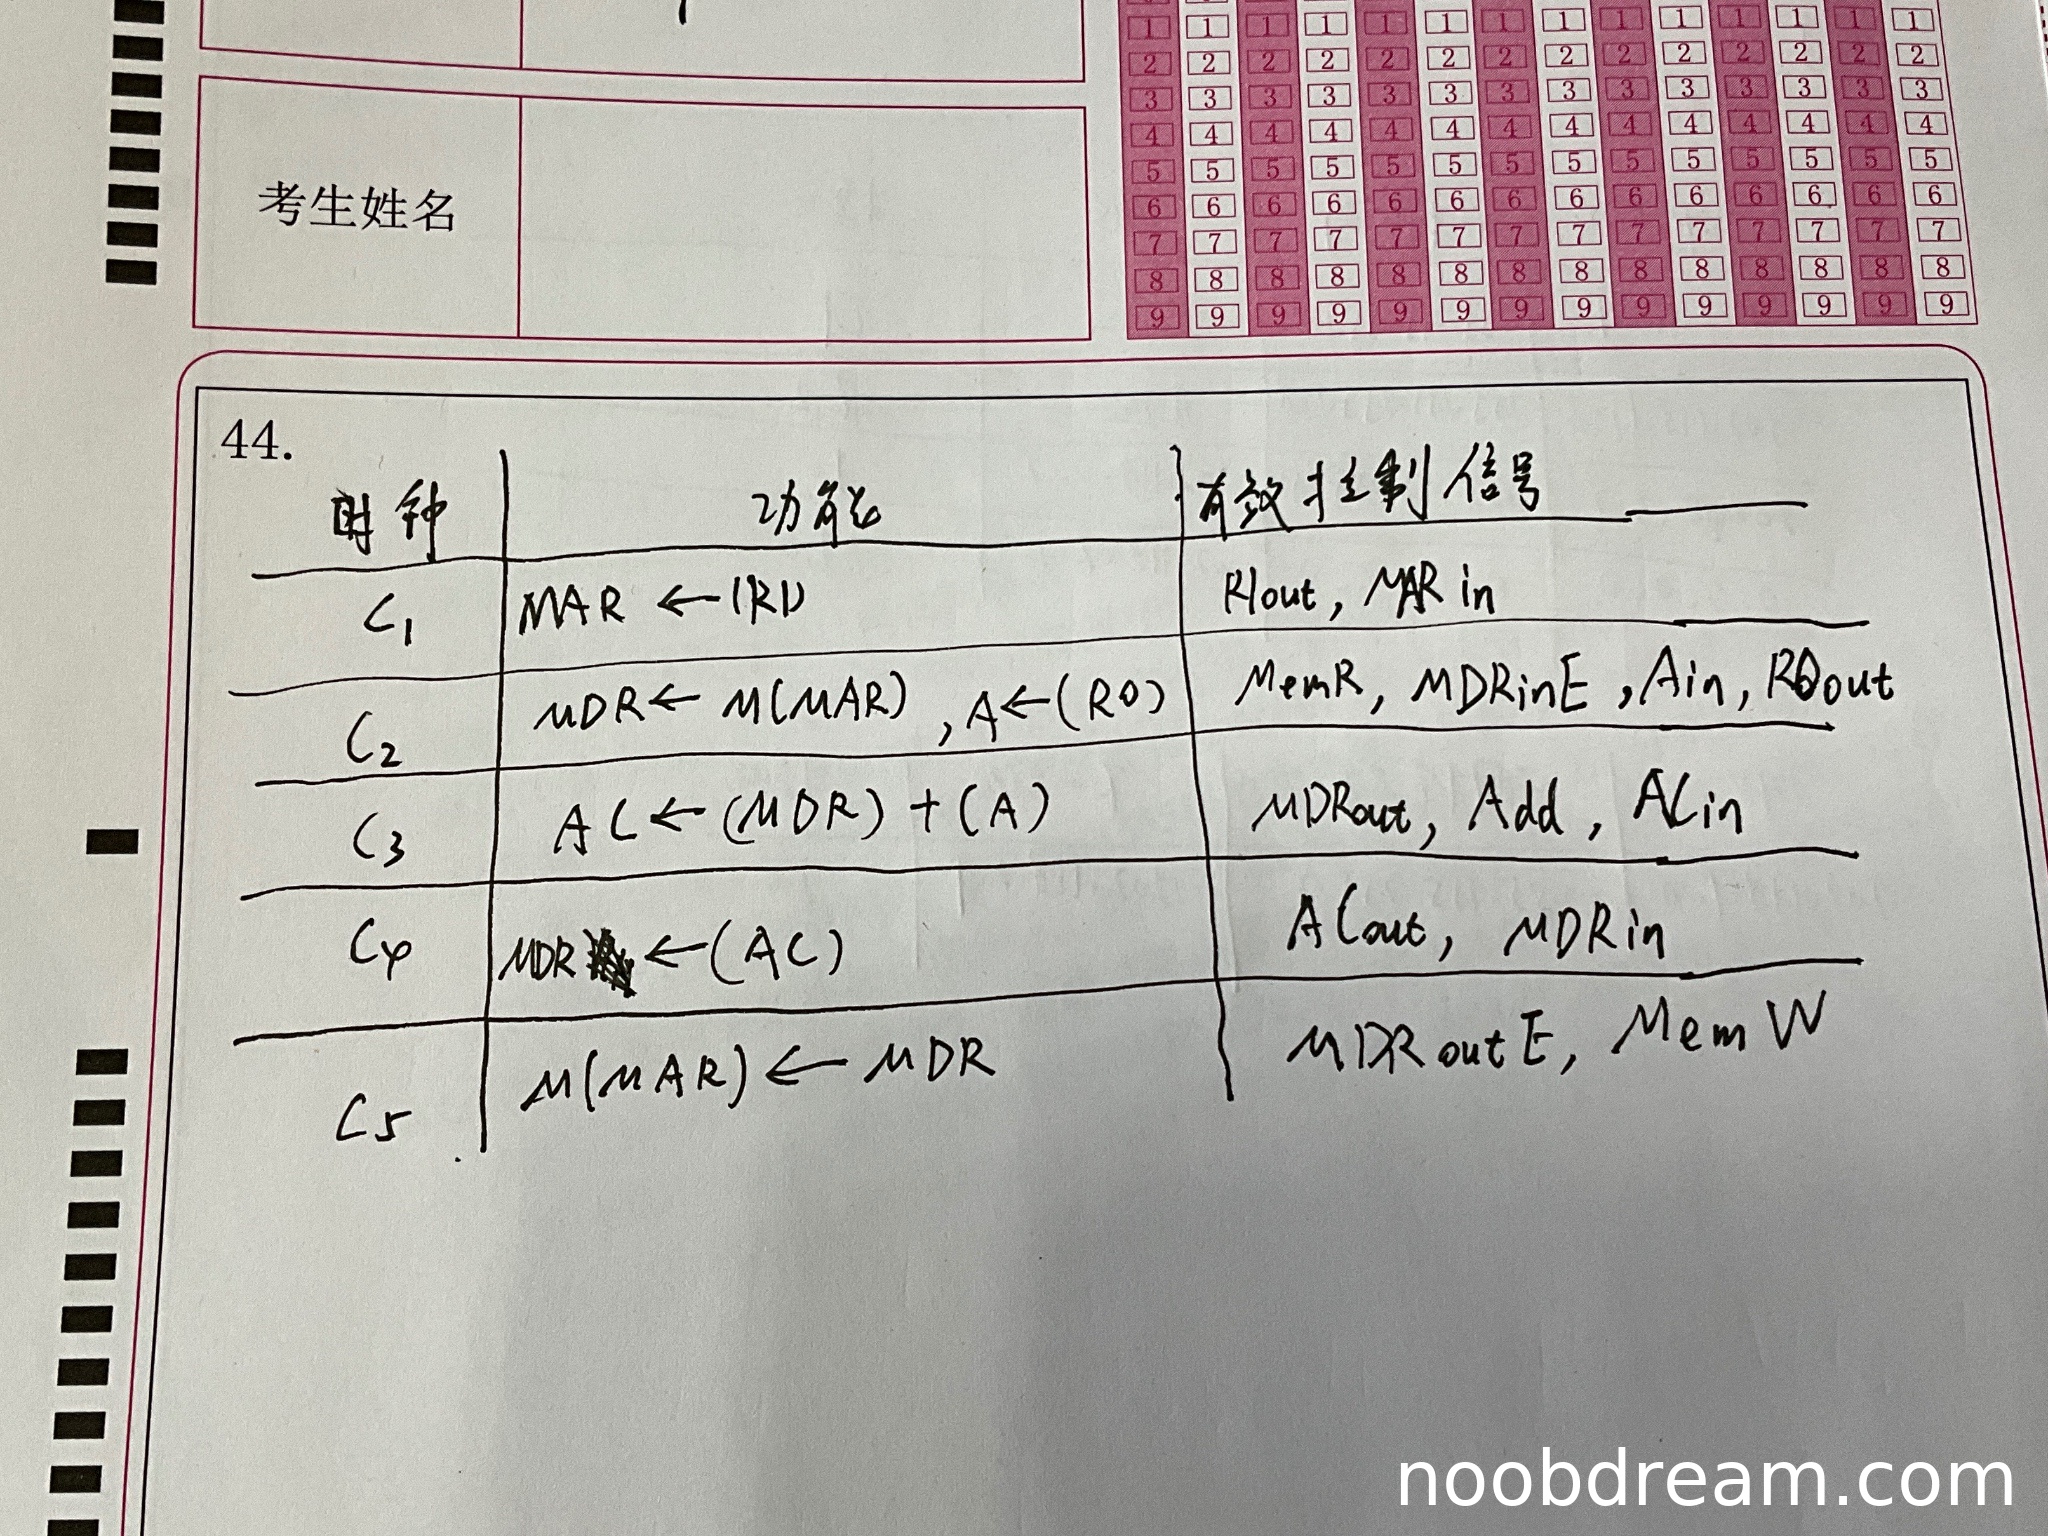 1 1 1 1 1 1 1 1 1 1 1 1 1 1
2 2 2 2 2 2 2 2 2 2 2 2 2 2
3 3 3 3 3 3 3 3 3 3 3 3 3 3
4 4 4 4 4 4 4 4 4 4 4 4 4 4
5 5 5 5 5 5 5 5 5 5 5 5 5 5
6 6 6 6 6 6 6 6 6 6 6 6 6 6
7 7 7 7 7 7 7 7 7 7 7 7 7 7
8 8 8 8 8 8 8 8 8 8 8 8 8 8
9 9 9 9 9 9 9 9 9 9 9 9 9 9
考生姓名
44.
时钟 功能 有效控制信号
C1 MAR ← (R1) R1out, MARin
C2 MDR ← M(MAR), A ← (R0) MemR, MDRinE, Ain, R0out
C3 AC ← (MDR) + (A) MDRout, Add, ACin
C4 MDR ← (AC) ACout, MDRin
C5 M(MAR) ← MDR MDRoutE, MemW
noobdream.com